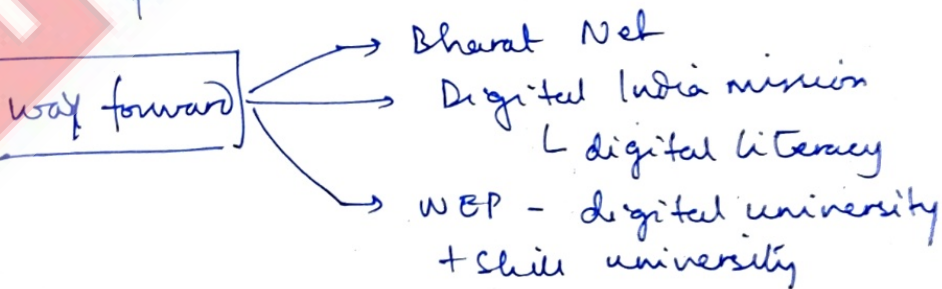 way forward
Bharat Net
Digital India mission
digital literacy
NEP - digital university
+ Skill university